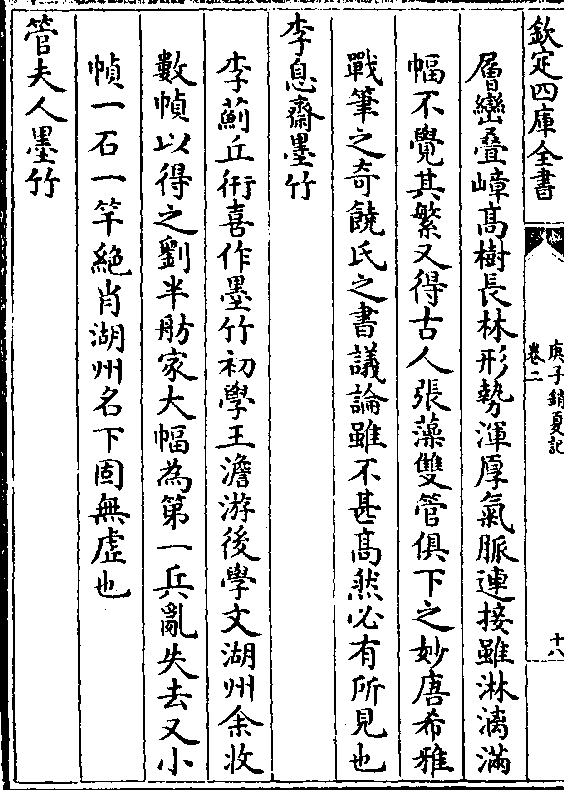 欽定四庫全書
庚子銷夏記
卷二
十八
層巒疊嶂髙樹長林形勢渾厚氣脈連接雖淋漓滿
幅不覺其繁又得古人張藻雙管俱下之妙唐希雅
戰筆之奇饒氏之書議論雖不甚髙然必有所見也
李息齋墨竹
李薊丘衎喜作墨竹初學王澹游後學文湖州余收
數幀以得之劉半舫家大幅為第一兵亂失去又小
幀一石一竿絶肖湖州名下固無虚也
管夫人墨竹